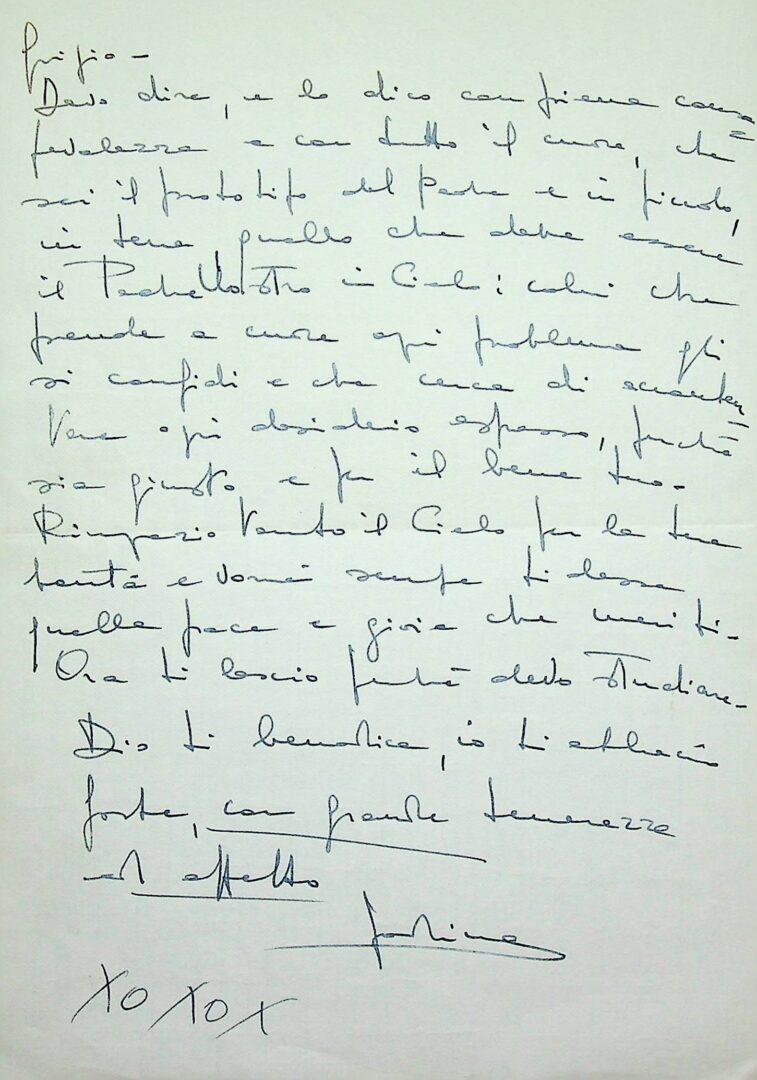 grigio -
Devo dire, e lo dico con piena consa=
pevolezza e con tutto il cuore, che
sei il prototipo del Padre e in piccolo,
in terra, quello che deve essere
il Padre Nostro in Cielo: colui che
prende a cuore ogni problema gli
si confidi e che cerca di acconten=
tare ogni desiderio espresso, purché
sia giusto e per il bene tuo.
Ringrazio tanto il Cielo per la tua
bontà e vorrei sempre ti desse
quella pace e gioia che meriti -
Ora ti lascio perché devo studiare -
Dio ti benedica, io ti abbraccio
forte, con grande tenerezza
ed affetto
XOXOX